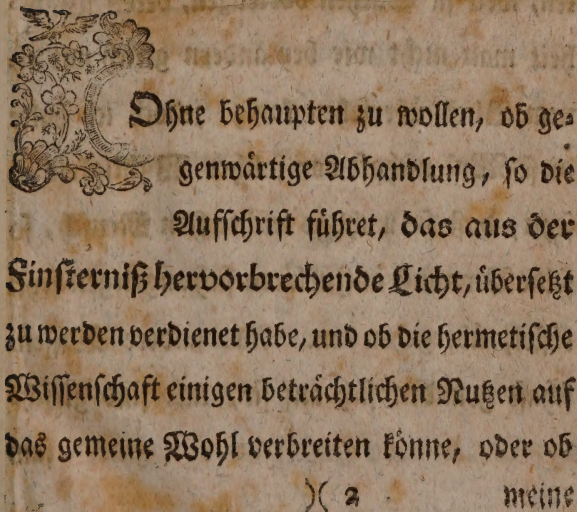 Ohne behaupten zu wollen, ob ge⸗
genwärtige Abhandlung, so die
Aufschrift führet, das aus der
Finsterniß hervorbrechende Licht, übersetzt
zu werden verdienet habe, und ob die hermetische
Wissenschaft einigen beträchtlichen Nutzen auf
das gemeine Wohl verbreiten könne, oder ob
)( 2 meine